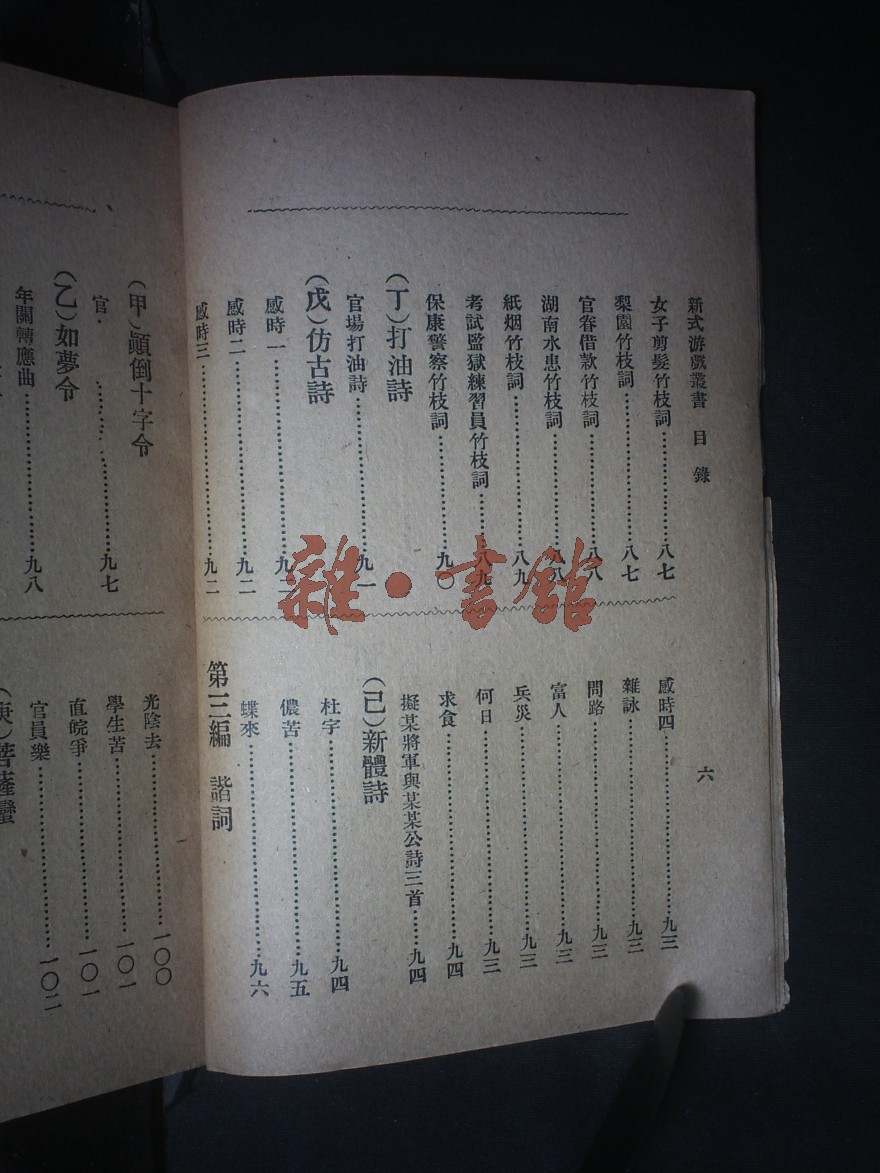 新式游戲叢書 目錄
六
女子剪髮竹枝詞……八七
梨園竹枝詞……八七
官眷借款竹枝詞……八八
湖南水患竹枝詞……八八
紙烟竹枝詞……八九
考試監獄練習員竹枝詞……八九
保康警察竹枝詞……九〇
（丁）打油詩
官場打油詩……九一
（戊）仿古詩
感時一……九二
感時二……九二
感時三……九二
感時四……九三
雜詠……九三
問路……九三
富人……九三
兵災……九三
何日……九三
求食……九四
擬某將軍與某某公詩三首……九四
（己）新體詩
杜宇……九四
儂苦……九五
蝶來……九六
第三編 諧詞
（甲）顚倒十字令
官・……九七
（乙）如夢令
年關轉應曲……九八
光陰去……一〇〇
學生苦……一〇一
直皖爭……一〇一
官員樂……一〇二
（庚）菩薩蠻
雜・書館